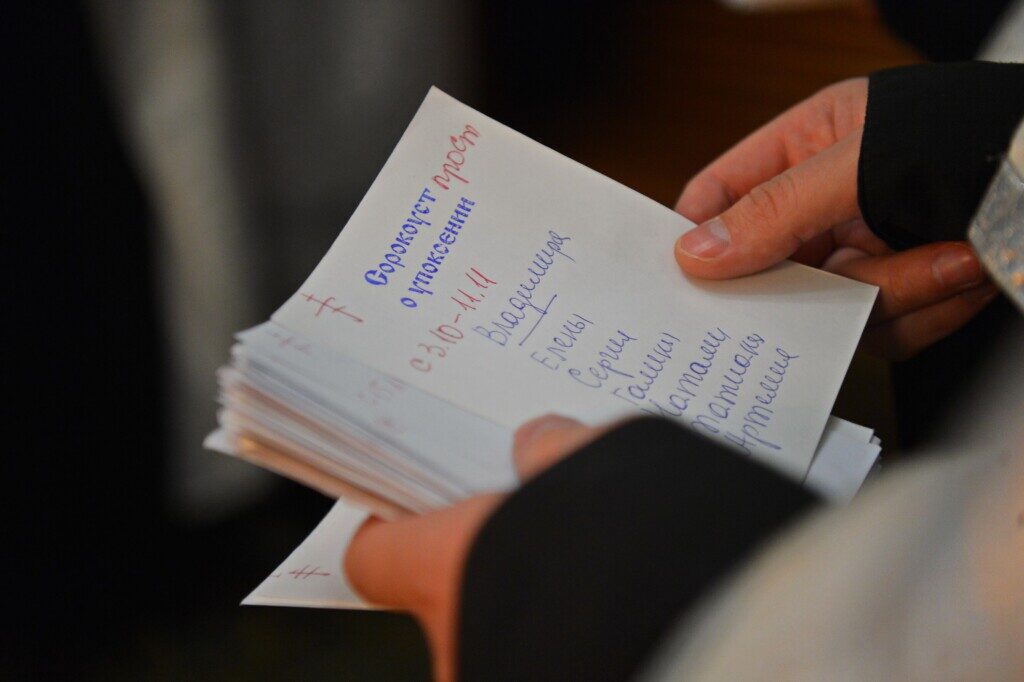 Сорокоуст прост
о упокоении
с 3.10-11.11
Владимира
Елены
Сергия
Галины
Наталии
Татиана
Артемия